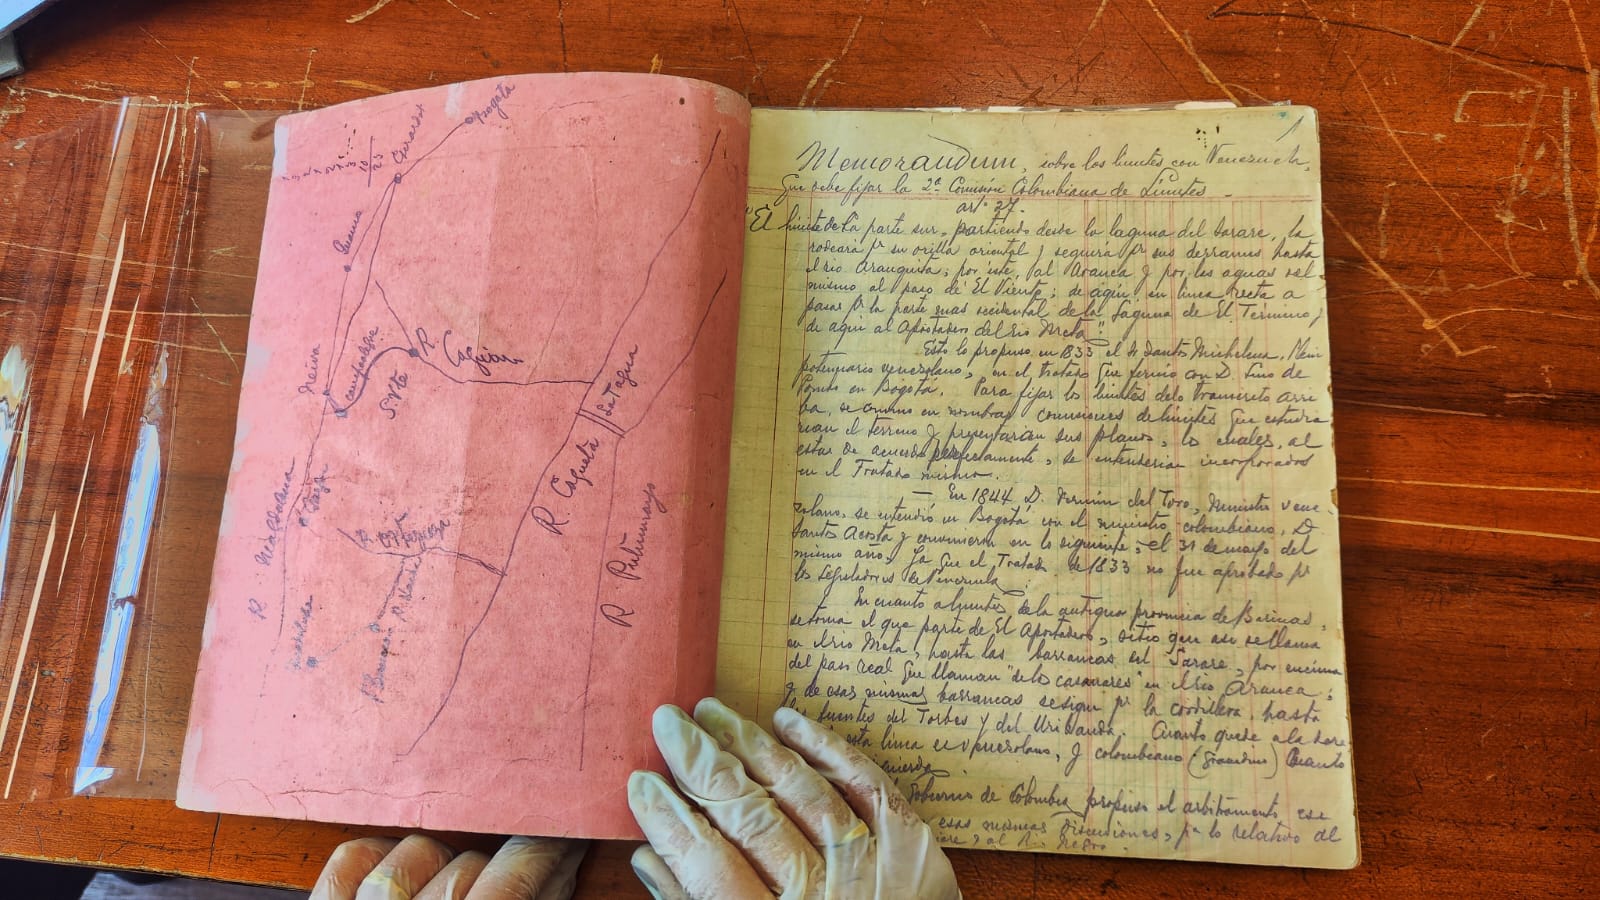 Bogotá
Girardot
Guamo
Neiva
Campoalegre
S. Vte
R. Caguán
La Tagua
R. Caquetá
R. Putumayo
R.
R. Orteguaza
1
Memorandum, sobre los límites con Venezuela,
que debe fijar la 2ª Comisión Colombiana de Límites.
art. 27.
"El límite de la parte sur, partiendo desde la laguna del Sarare, la
rodeará pr su orilla oriental y seguirá pr sus derrames hasta
el río Arauquita; por éste, al Arauca y por las aguas del
mismo al paso de El Viento; de aquí, en línea recta a
pasar pr la parte más occidental de la laguna de El Término y
de aquí al Apostadero del río Meta".
Esto lo propuso en 1833 el Sr Santos Michelena, Mini
potenciario venezolano, en el tratado que firmó con D. Lino de
Pombo en Bogotá. Para fijar los límites delo transcrito arri
ba, se convino en nombrar comisiones de límites que estudia
rían el terreno y presentarían sus planos, lo cuales, al
estar de acuerdo perfectamente, se entenderían incorporados
en el Tratado mismo.
— En 1844 D. Fermín del Toro, Ministro vene-
zolano, se entendió en Bogotá con el ministro colombiano, D.
Santos Acosta y convinieron en lo siguiente, el 31 de mayo del
mismo año, ya que el Tratado de 1833 no fue aprobado pr
los legisladores de Venezuela.
En cuanto a límites de la antigua provincia de Barinas,
se toma el que parte de El Apostadero, sitio que así se llama
en el río Meta, hasta las barrancas del Sarare, por encima
del paso real que llaman "de los casanares" en el río Arauca;
y de esas mismas barrancas se sigue pr la cordillera, hasta
las fuentes del Torbes y del Uribante. Cuanto quede a la dere
esta línea es venezolano, y colombiano (granadino) cuanto
izquierda.
Gobierno de Colombia propuso el arbitramento ese
esas mismas discusiones, pr lo relativo al
y al Río Negro.